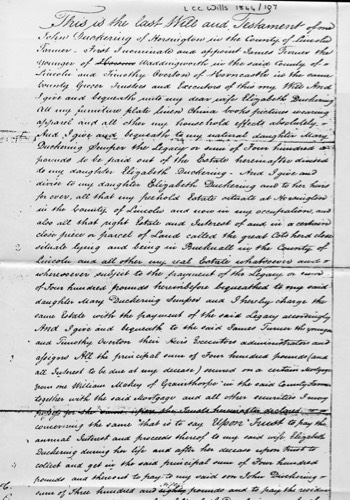 LCC Wills 1844/197
This is the last Will and Testament of me
John Duckering of Hornington in the County of Lincoln
Farmer - First I nominate and appoint James Turner the
younger of Waddingworth in the said County of
Lincoln and Timothy Overton of Horncastle in the same
County Grocer Trustees and Executors of this my Will And
I give and bequeath unto my dear wife Elizabeth Duckering
All my furniture plate linen China books pictures wearing
apparel and all other my household effects absolutely -
And I give and bequeath to my natural daughter Mary
Duckering the Legacy or sum of Four hundred
pounds to be paid out of the Estate hereinafter devised
to my daughter Elizabeth Duckering - And I give and
devise to my daughter Elizabeth Duckering and to her heirs
for ever, all that my freehold Estate situate at Hornington
in the County of Lincoln and now in my occupation, and
also all that right Estate and Interest of and in a certain
close piece or parcel of Land called the great Cots hard close
situate lying and being in Bucknall in the County of
Lincoln and all other my real Estate whatsoever and
wheresoever subject to the payment of the Legacy or sum
of Four hundred pounds hereinbefore bequeathed to my said
daughter Mary Duckering and I hereby charge the
same Estate with the payment of the said Legacy accordingly
And I give and bequeath to the said James Turner the younger
and Timothy Overton their Heirs Executors administrators and
assigns All the principal sum of Four hundred pounds (and
all Interest to be due at my decease) secured on a certain Mortgage
from one William of Grainthorpe in the said County Farmer
together with the said Mortgage and all other securities I may
for the same upon the Trusts hereinafter declared
concerning the same That is to say Upon Trust to pay the
annual Interest and proceeds thereof to my said wife Elizabeth
Duckering during her life and after her decease upon trust to
collect and get in the said principal sum of Four hundred
pounds and thereout to pay to my said son John Duckering
sum of Three hundred and eighty pounds and to pay the residue